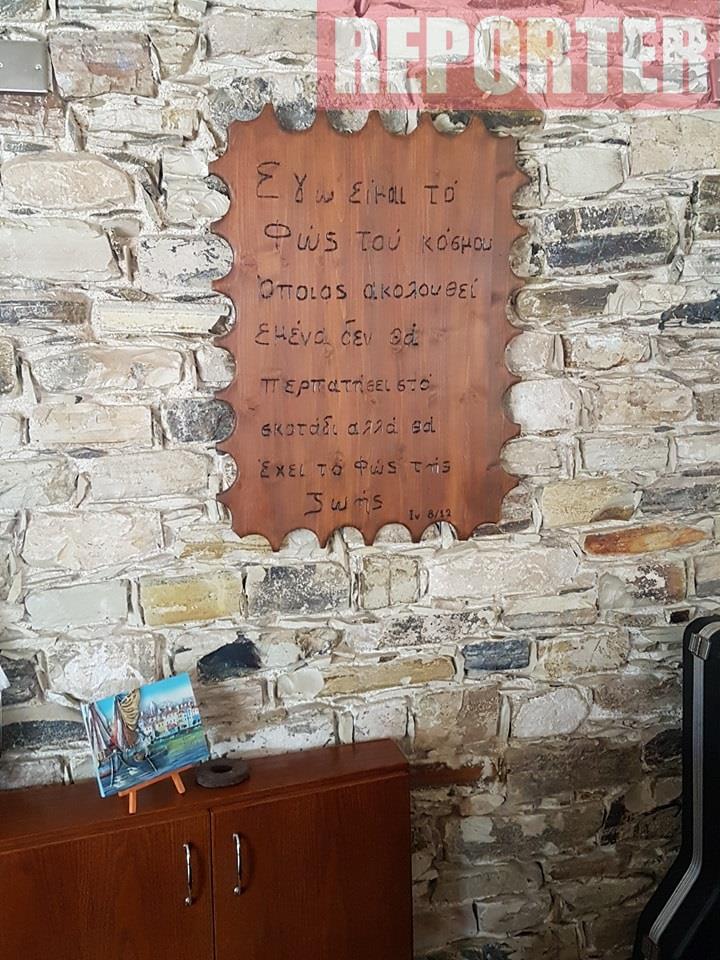 REPORTER
Εγω είμαι τό
Φώς τού κόσμου
Όποιος ακολουθεί
Εμένα δεν θά
περπατήσει στό
σκοτάδι αλλά θά
έχει τό φώς τής
Ζωής
Ιν 8/12